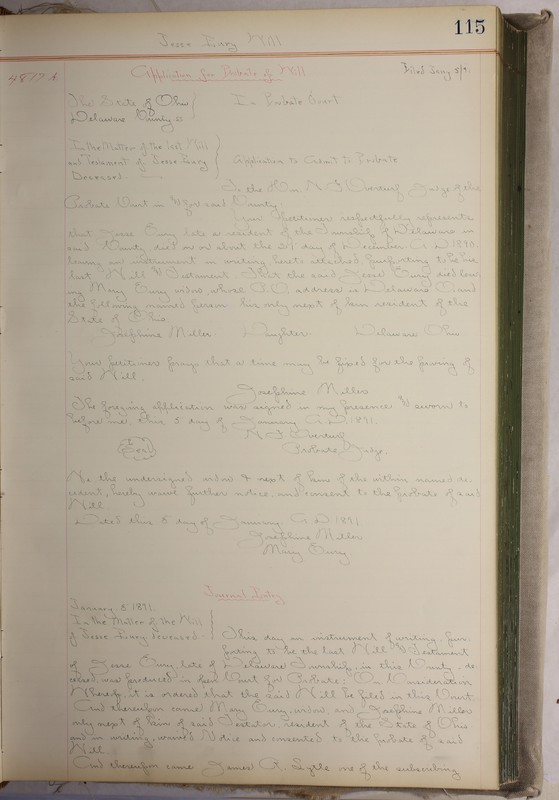 115
Jesse Curry Will
4817 A
Application for Probate of Will
Filed Jany 5/91
The State of Ohio
Delaware County ss
In Probate Court
In the Matter of the last Will
and Testament of Jesse Curry
Deceased
Application to Admit to Probate
To the Hon. N F Overturf Judge of the
Probate Court in & for said County.
Your Petitioner respectfully represents
that Jesse Curry late a resident of the Township of Delaware in
said County died on or about the day of December A.D 1890
leaving an instrument in writing hereto attached purporting to be his
last Will & Testament. That the said Jesse Curry died leav
ing Mary Curry widow whose P.O. address is Delaware O and
the following named person his only next of kin resident of the
State of Ohio
Josephine Miller Daughter Delaware Ohio
Your petitioner prays that a time may be fixed for the proving of
said Will.
Josephine Miller
The foregoing application was signed in my presence & sworn to
before me this 5 day of January A.D. 1891.
N F Overturf
Seal
Probate Judge.
We the undersigned widow & next of kin of the within named de
cedent, hereby waive further notice, and consent to the probate of said
Will
Dated this 5 day of January A D 1891
Josephine Miller
Mary Curry
Journal Entry
January 5 1891
In the Matter of the Will
of Jesse Curry Deceased
This day an instrument of writing, pur
porting to be the last Will & Testament
of Jesse Curry, late of Delaware Township, in this County, de
ceased was produced in open Court for Probate; On Consideration
Whereof, it is ordered that the said Will be filed in this Court
And thereupon came Mary Curry, widow, and Josephine Miller
only next of kin of said Testator, resident of the State of Ohio
and in writing, waived Notice and consented to the probate of said
Will
And thereupon came James A. Lytle one of the subscribing